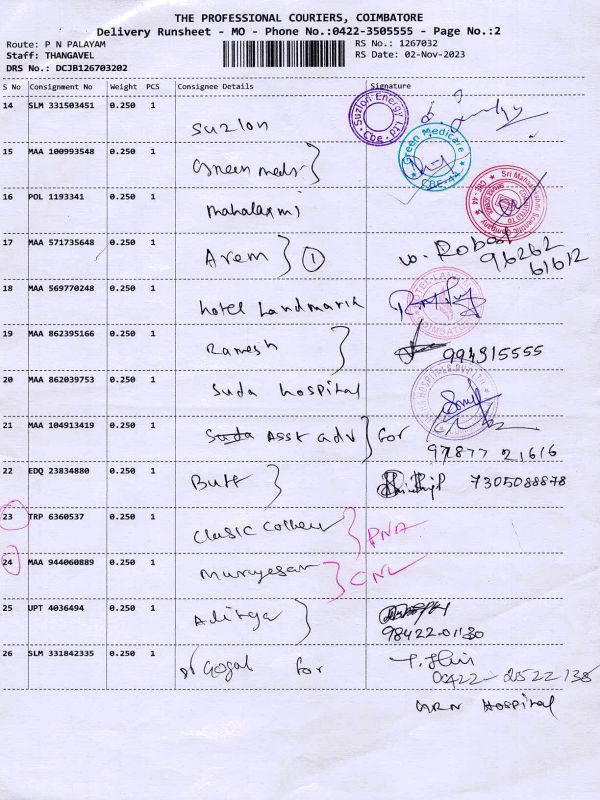 THE PROFESSIONAL COURIERS, COIMBATORE
Delivery Runsheet - MO - Phone No.:0422-3505555 - Page No.:2
Route: P N PALAYAM RS No.: 1267032
Staff: THANGAVEL RS Date: 02-Nov-2023
DRS No.: DCJB126703202
S No Consignment No Weight PCS Consignee Details Signature
14 SLM 331503451 0.250 1 Suzlon Suzlon Energy Ltd Cbe
15 MAA 100993548 0.250 1 Green meds Green Medicare CBE-44
16 POL 1193341 0.250 1 mahalaxmi
17 MAA 571735648 0.250 1 Arem 1
96262
61612
18 MAA 569770248 0.250 1 hotel Landmark
19 MAA 862395166 0.250 1 Ramesh 994315555
20 MAA 862039753 0.250 1 Suda hospital
21 MAA 104913419 0.250 1 Suda Asst adv for
97877 21616
22 EDQ 23834880 0.250 1 Butt 7305088878
23 TRP 6360537 0.250 1 Clasic PNA
24 MAA 944060889 0.250 1 Murugesan CNL
25 UPT 4036494 0.250 1 Aditya
98422-01130
26 SLM 331842335 0.250 1 Gogal for
0422-2522138
Hospital